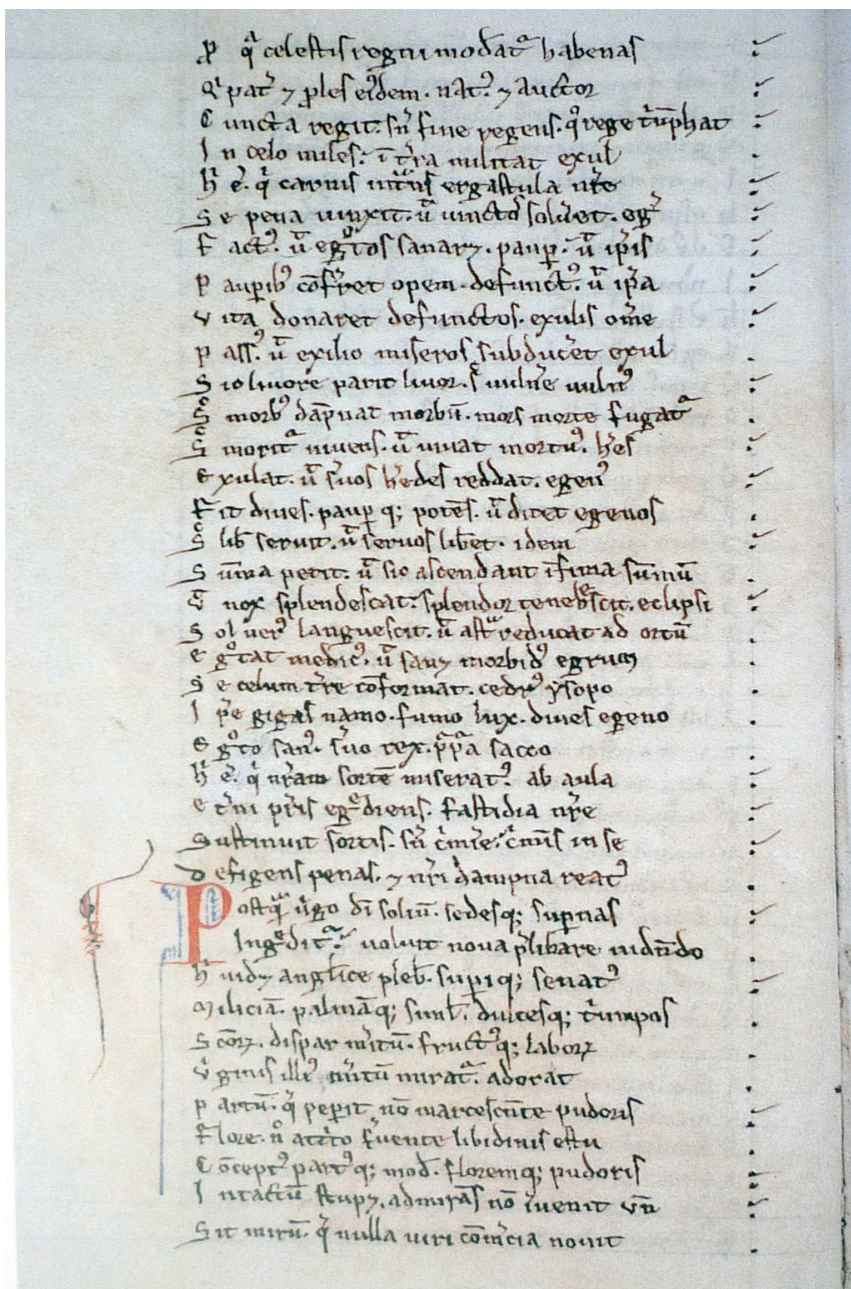 P q̉ celestis regni modat᷑ habenas
Q̇ pat᷑ ⁊ ples eiꝰdem. natꝰ ⁊ auctor
C uncta regit. sñ fine regens. q̊ rege t̉ũphat
I n celo miles. ĩ t̉ra militat exul
h̉ ẽ. q̉ carnis int̃ns ergastula nr̃e
S e pena vinxit. ů vinctos solũet. eg̉
F actꝰ. ů eg̊tos sanaꝫ. paup̱. ů ip̃is
P aup̱ibꝰ cõfr̃et opem. defunctꝰ. ů ip̃a
v ita donaret defunctos. exulis om̃e
p assꝰ. ů exilio miseros subducẽt exul
S ic livore parit livor. s̊ vulñe vulnꝰ
S̊ morbꝰ dap̃nat morbũ. mors morte fugat᷑
S̊ morit᷑ vivens. ů vivat mortuꝰ. h̃es
E xulat. ů s̉vos h̉edes reddat. egenꝰ
F it dives. paup̱ qꝫ potẽs. ů ditet egenos
S̊ lib̃ servit. ů servos lib̃et. idem
S ũma petit. ů sic ascendant ĩfima sũmũ
Ů nox splendescat. splendor teneb̃scit. eclipsi
S ol verꝰ languescit. ů ast᷑ reducat ad ortũ
e g̊tat medicꝰ. ů sanꝫ morbidꝰ egrum
S e celum t̉re cõformat. cedrꝰ ysopo
I p̃e gigas nano. fumo lux. dives egeno
E g̊to sanꝰ. s̉vo rex. p̃p̃a sacco
h̉ ẽ. q̉ nr̃am sortẽ miseratꝰ. ab aula
e t̉ni pr̃is eg̉diens. fastidia nr̃e
S ustinuit sortis. sñ c̉mĩe. c̉mĩs in se
D efigens penas. ⁊ nr̃i dampna reatꝰ
P ostq̃ v̉go dĩ soliũ. sedesqꝫ supnas
Ing̉dit᷑. voluit nova p̃libare vidñdo
h̉ vidꝫ angl̃ice pleb̃. sup̱iqꝫ senatꝰ
M iliciã. palmãqꝫ simul̃. dulcesqꝫ t̉umpos
S c̃oꝝ. dispar m̃itũ. fructꝰqꝫ laboꝝ
V̉ ginis illiꝰ m̃itũ mirat᷑. adorat
p artũ. q̉ peperit nõ marcescñte pudoris
F lore. nõ att̉to f̉vente libidinis estu
C õceptꝰ partꝰqꝫ mod. floremqꝫ pudoris
I ntactũ stupꝫ. admirãs nõ ĩvenit vñ
S it mirũ. q̉ nulla viri com̃cia novit